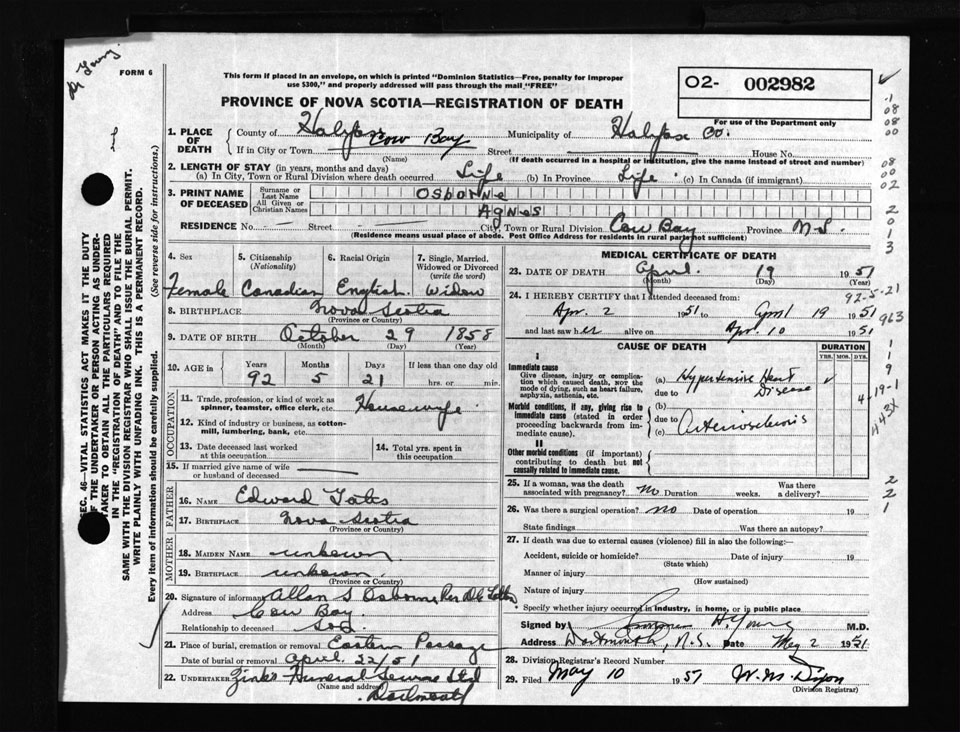 Dr Young
FORM 6
This form if placed in an envelope, on which is printed "Dominion Statistics—Free, penalty for improper
use $300," and properly addressed will pass through the mail "FREE"
PROVINCE OF NOVA SCOTIA—REGISTRATION OF DEATH
02- 002982
For use of the Department only
1. PLACE OF DEATH
County of Halifax Municipality of Halifax Co.
If in City or Town Cow Bay Street House No.
(Name) (If death occurred in a hospital or institution, give the name instead of street and number)
2. LENGTH OF STAY (in years, months and days)
(a) In City, Town or Rural Division where death occurred Life (b) In Province Life (c) In Canada (if immigrant)
3. PRINT NAME OF DECEASED
Surname or Last Name Osborne
All Given or Christian Names Agnes
RESIDENCE No. — Street — City, Town or Rural Division Cow Bay Province N.S.
(Residence means usual place of abode. Post Office Address for residents in rural parts not sufficient)
4. Sex
Female
5. Citizenship (Nationality)
Canadian
6. Racial Origin
English
7. Single, Married, Widowed or Divorced (write the word)
Widow
8. BIRTHPLACE Nova Scotia
(Province or Country)
9. DATE OF BIRTH October 29 1858
(Month) (Day) (Year)
10. AGE in Years Months Days If less than one day old
92 5 21 hrs. or min.
OCCUPATION
11. Trade, profession, or kind of work as spinner, teamster, office clerk, etc. Housewife
12. Kind of industry or business, as cotton-mill, lumbering, bank, etc.
13. Date deceased last worked at this occupation
14. Total yrs. spent in this occupation
15. If married give name of wife or husband of deceased
FATHER
16. NAME Edward
17. BIRTHPLACE Nova Scotia
MOTHER
18. MAIDEN NAME unknown
19. BIRTHPLACE unknown
(Province or Country)
20. Signature of informant Allan S Osborne Per
Address Cow Bay
Relationship to deceased Son
21. Place of burial, cremation or removal Eastern Passage
Date of burial or removal April 22/51
22. UNDERTAKER Zinks Funeral Service Ltd
(Name and address) Dartmouth
MEDICAL CERTIFICATE OF DEATH
23. DATE OF DEATH April 19 1951
(Month) (Day) (Year)
92-5-21
24. I HEREBY CERTIFY that I attended deceased from:
Apr. 2 1951 April 19 1951
and last saw her alive on Apr. 10 1951
CAUSE OF DEATH
DURATION
YRS. MOS. DYS.
I
Immediate cause
Give disease, injury or complication which caused death, not the mode of dying, such as heart failure, asphyxia, asthenia, etc.
(a) Hypertensive Heart Disease
due to
Morbid conditions, if any, giving rise to immediate cause (stated in order proceeding backwards from immediate cause).
(b)
due to
(c) Arteriosclerosis
II
Other morbid conditions (if important) contributing to death but not causally related to immediate cause.
25. If a woman, was the death associated with pregnancy? No Duration weeks. Was there a delivery?
26. Was there a surgical operation? no Date of operation 19
State findings Was there an autopsy?
27. If death was due to external causes (violence) fill in also the following:—
Accident, suicide or homicide? Date of injury 19
(State which)
Manner of injury
(How sustained)
Nature of injury
* Specify whether injury occurred in industry, in home, or in public place
Signed by H. Young M.D.
Address Dartmouth, N.S. Date May 2 1951
28. Division Registrar's Record Number
29. Filed May 10 1951 W. M. Dixon
(Division Registrar)
SEC. 46—VITAL STATISTICS ACT MAKES IT THE DUTY
OF THE UNDERTAKER OR PERSON ACTING AS UNDER-
TAKER TO OBTAIN ALL THE PARTICULARS REQUIRED
IN THE "REGISTRATION OF DEATH" AND TO FILE THE
SAME WITH THE DIVISION REGISTRAR WHO SHALL ISSUE THE BURIAL PERMIT.
WRITE PLAINLY WITH UNFADING INK. THIS IS A PERMANENT RECORD.
Every item of information should be carefully supplied. (See reverse side for instructions.)